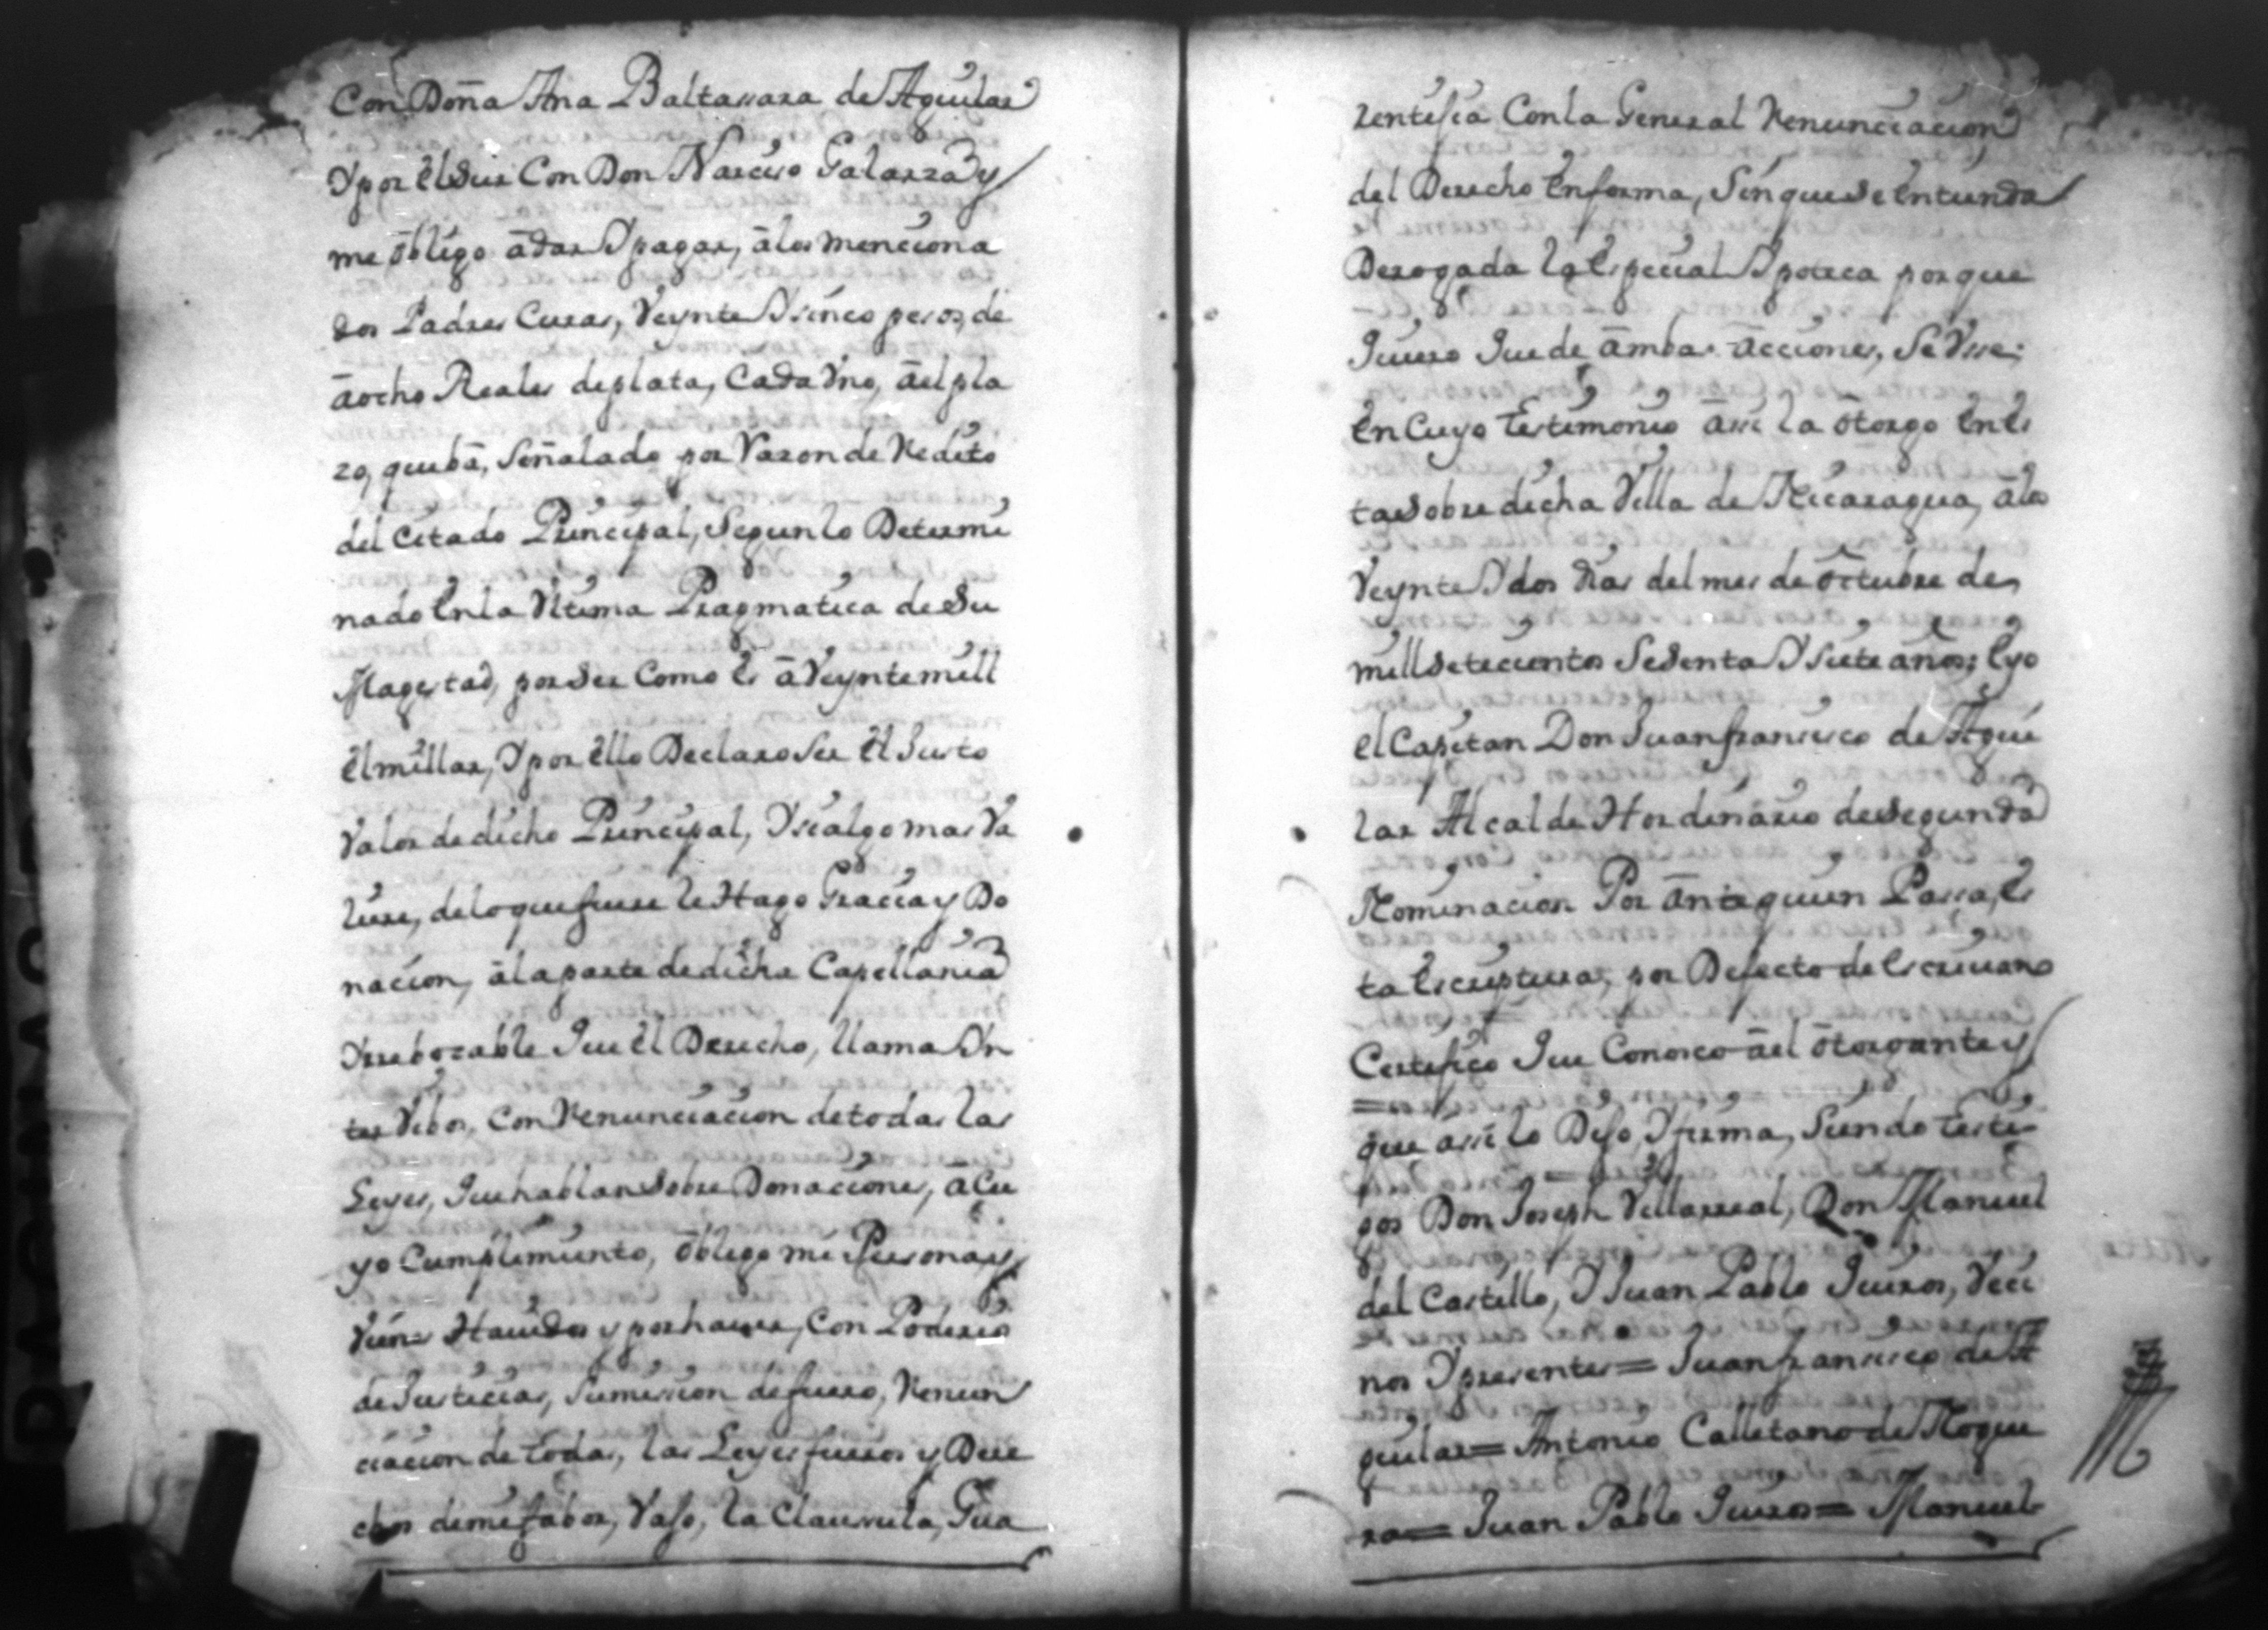 Con Doña Ana Baltassara de Aguilar
Y por el Sur Con Don Narciso Galarza y
me óbligo á dar Y pagar, á los menciona
dos Padres Curas, Veynte Y sinco pesos, de
á ocho Reales de plata, Cada Vno, ael pla
zo, que bá, Señalado por Razon de Redito
del Citado Principal, Segun lo Determi
nado En la Vltima Pragmatica de Su
Magestad, por Ser Como Es á Veynte mill
El millar, Y por Ello Declaro Ser El Justo
Valor de dicho Principal, Y si algo mas Va
liere, de lo que fuere le Hago Gracia y Do
nacion, á la parte de dicha Capellania
Yrrebocable Que El Derecho, llama Yn
ter Vibos, Con Renunciacion de todas las
Leyes, Que hablan Sobre Donaciones, á Cu
yo Cumplimiento, óbligo mi Persona y
Vienes Hauidos y por hauer, Con Poderio
de Justicias, Sumission de fuero, Renun
ciacion de todas, las Leyes fueros y Dere
chos de mi fabor, Vajo, la Clausula, Gua
rentisia Con la General Renunciacion
del Derecho En forma, Sin que Se Entienda
Derogada la Especial Ypoteca por que
Quiero Que de ámbas ácciones, Se Vsse;
En Cuyo Testimonio ássi la ótorgo En Es
ta Sobre dicha Villa de Nicaragua, á los
Veynte Y dos dias del mes de óctubre de
mill Setecientos Sesenta Y Siete años; E yo
el Capitan Don Juan fransisco de Agui
lar Alcalde Hordinario de Segunda
Nominacion Por ánte quien Passa, Es
ta Escriptura, por Defecto de Escriuano
Certifico Que Conosco áel ótorgante y
que ássi lo Dijo, Y firma, Siendo testi-
gos Don Joseph Villarreal, Don Manuel
del Castillo, Y Juan Pablo Quiros, Veci
nos Y presentes = Juan fransisco de A
guilar = Antonio Calletano de Nogue
ra = Juan Pablo Quiros = Manuel